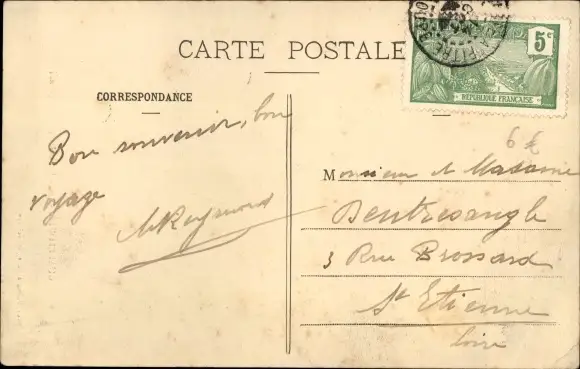 CARTE POSTALE
5c
RÉPUBLIQUE FRANÇAISE
CORRESPONDANCE
Bon souvenir, bon
voyage
Raymond
6 €
Monsieur et Madame
Dentresangle
3 Rue Brossard
St Etienne
Loire